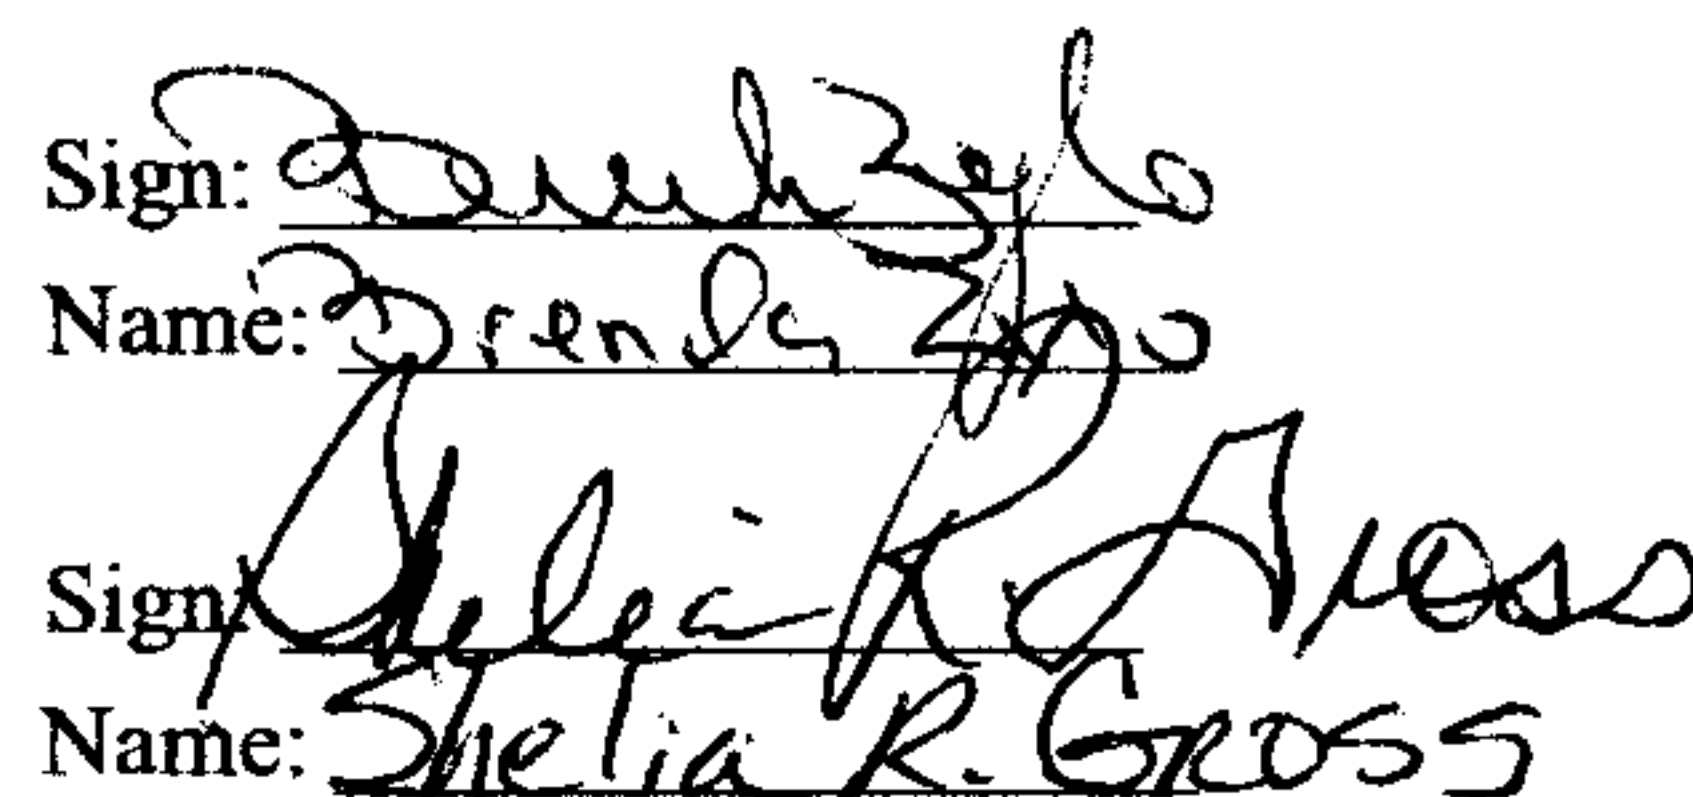 Sign: Brenda
Name: Brenda
Sign: Shelia R. Gross
Name: Shelia R. Gross